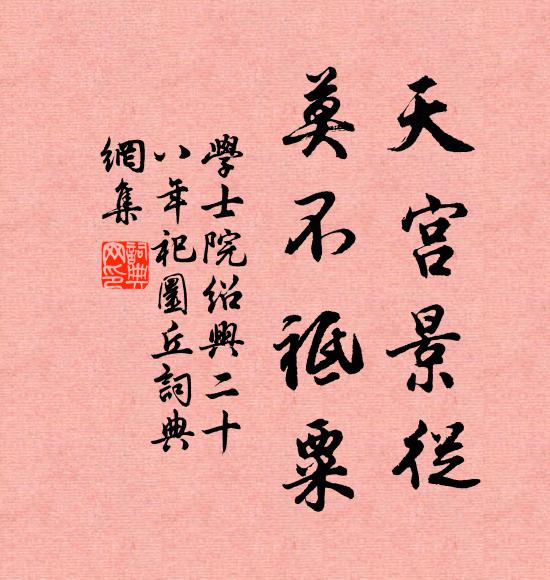 天宮景從
莫不祗粟
學士院紹興二十
八年祀圜丘詞典
網集
詞典
网印